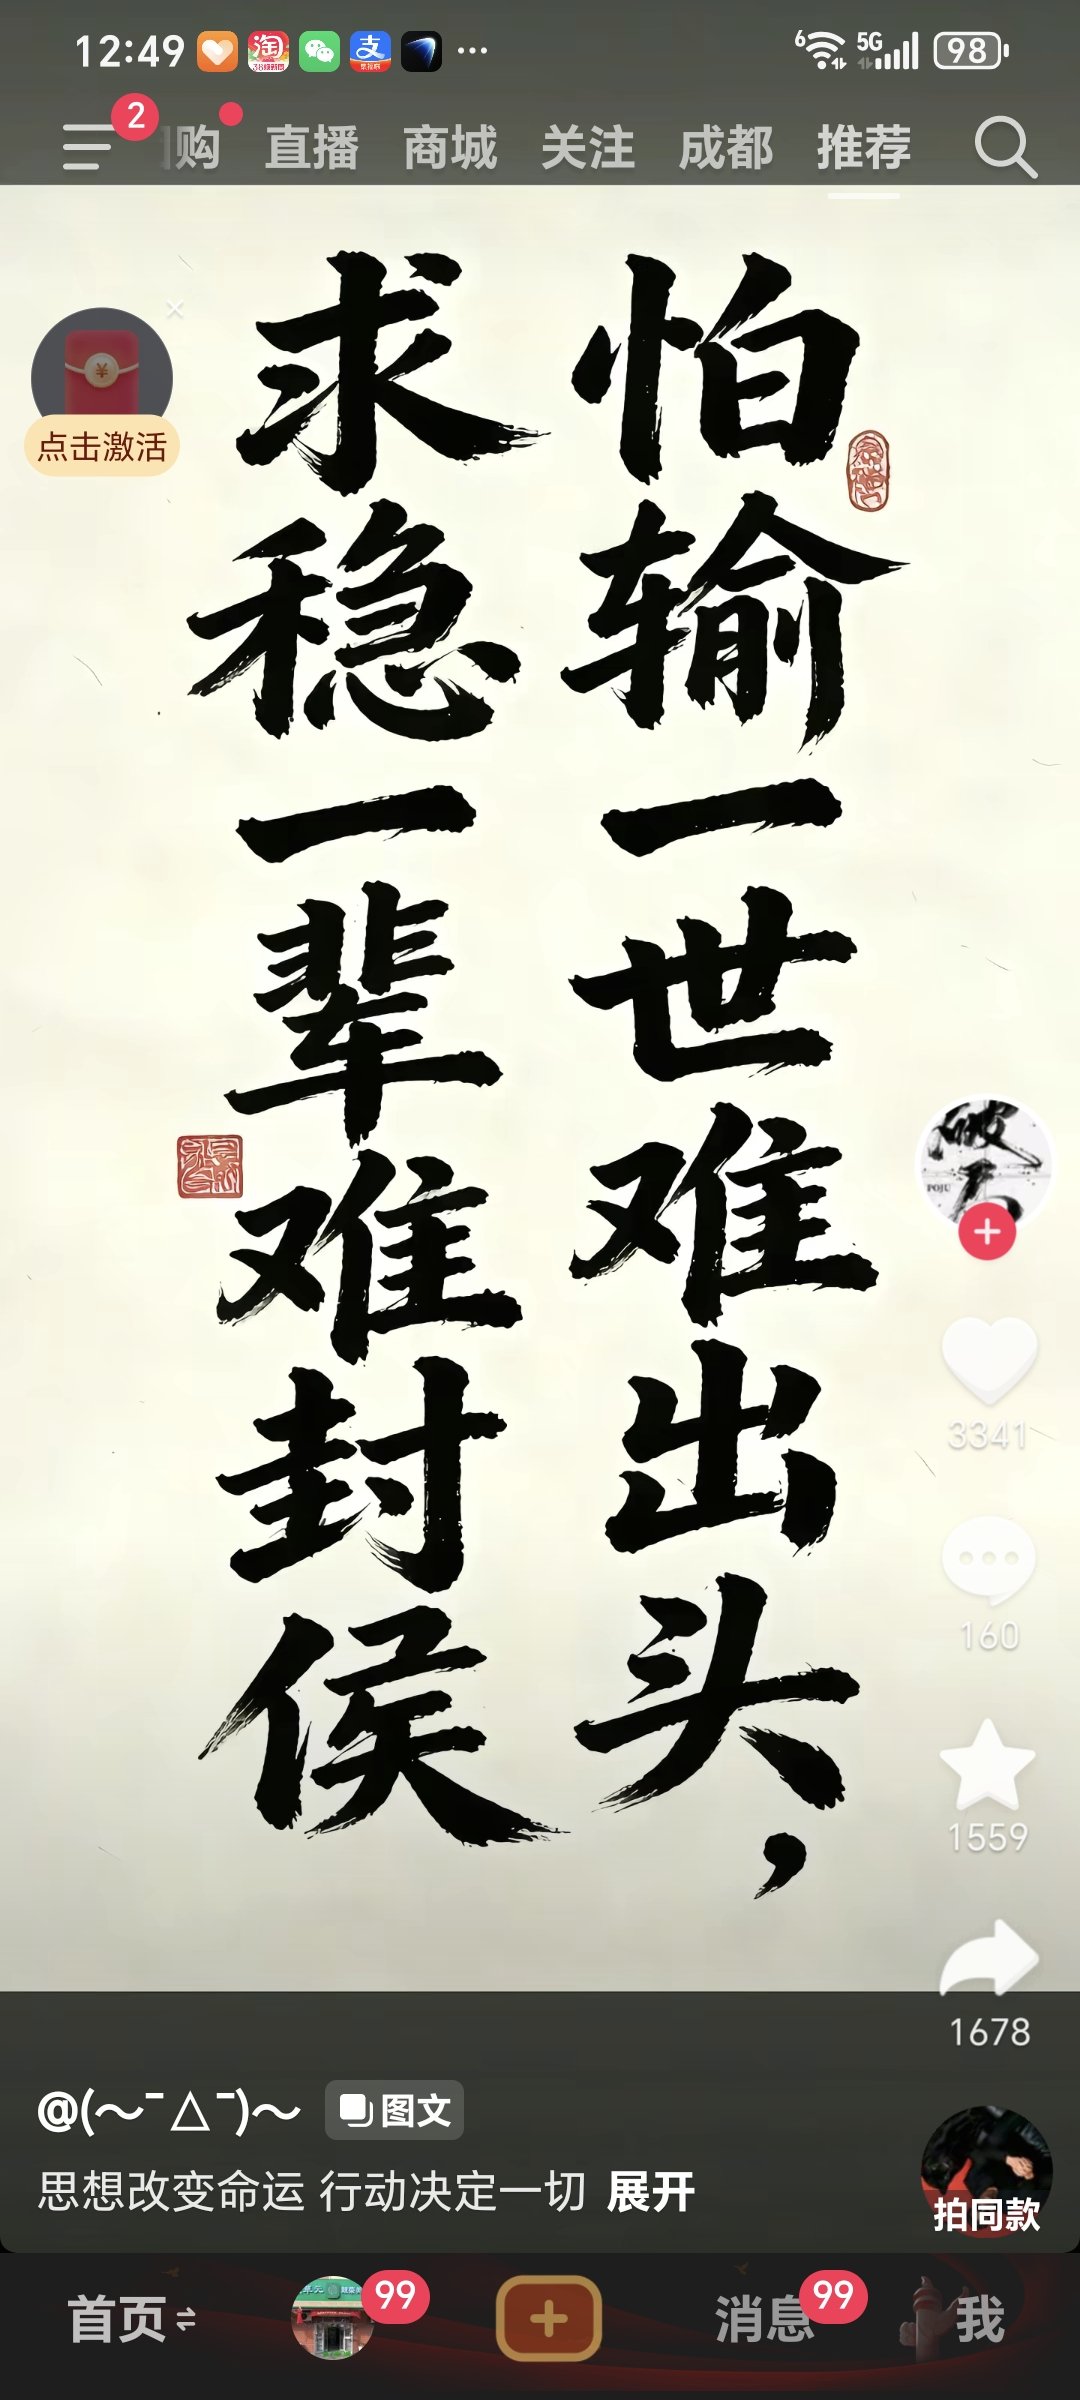 12:49
6
5G
98
2
购
直播
商城
关注
成都
推荐
点击激活
怕输一世难出头，
求稳一辈难封侯
POJU
3341
160
1559
1678
@(～¯△¯)～
图文
思想改变命运 行动决定一切 展开
拍同款
首页
99
消息
99
我